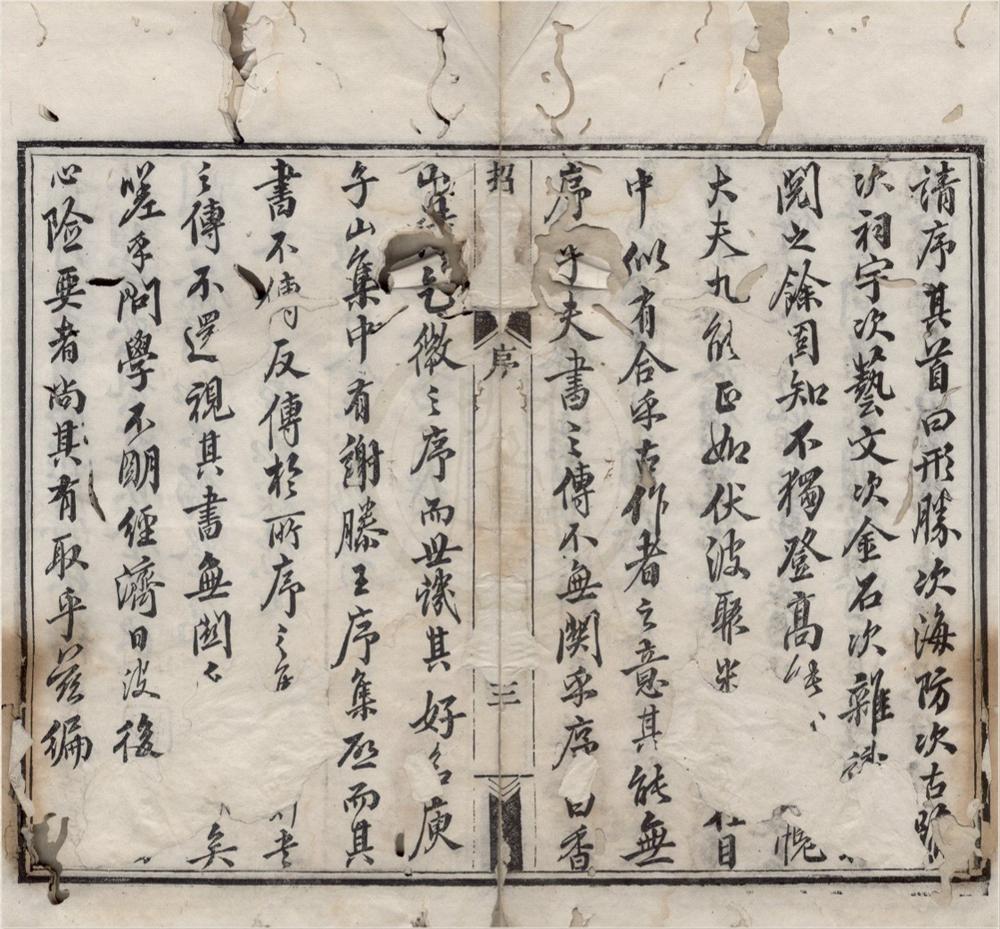 請序其首曰形勝次海防次古
次祠宇次藝文次金石次雜
閱之餘固知不獨登高 慨
大夫九能正如伏波聚米 目
中似有合乎古作者之意其能無
序乎夫書之傳不無関乎序曰香
招
序
三
山集 乞微之序而世譏其好名庾
子山集中有謝滕王序集啟而其
書不傳反傳於所序之 書
之傳不還視其書無関 矣
嗟乎問學不明經濟日波後
心險要者尚其有取乎茲編